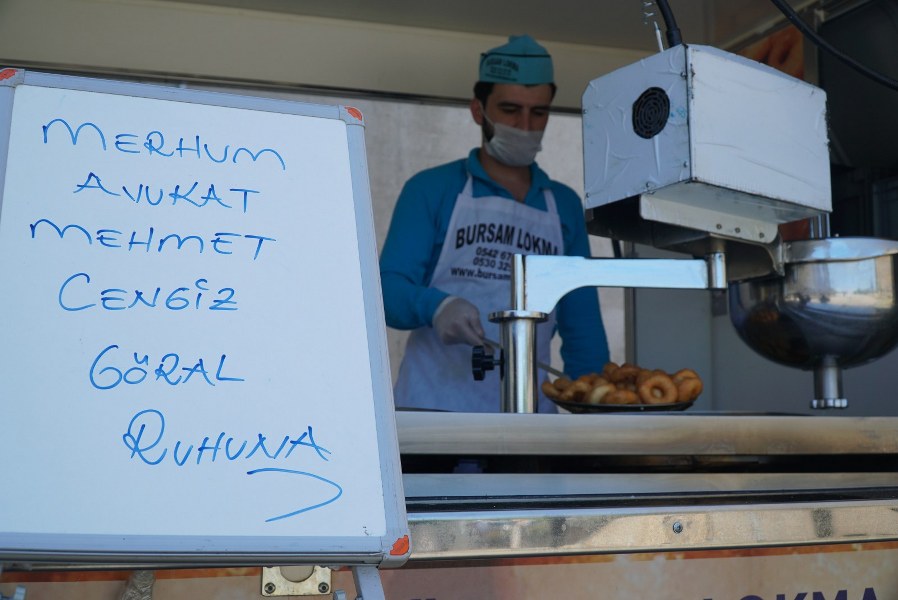 MERHUM
AVUKAT
MEHMET
CENGİZ
GÖRAL
RUHUNA
BURSAM LOKMA
BURSAM LOKMA
0542 67
0530 32
www.bursam
LOKMA